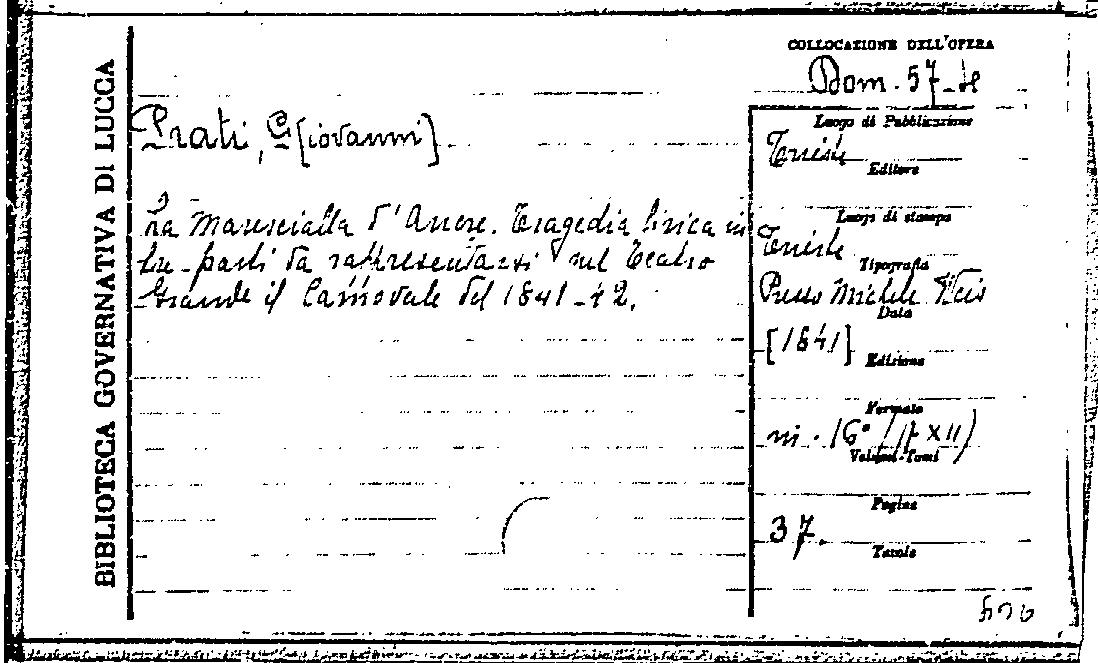 BIBLIOTECA GOVERNATIVA DI LUCCA
COLLOCAZIONE DELL'OPERA
Bom. 57-
Prati, G[iovanni]
La Marescialla d'Ancre. Tragedia lirica in
tre parti da rappresentarsi nel Teatro
Grande il Carnovale del 1841-42.
Luogo di Pubblicazione
Trieste
Editore
Luogo di stampa
Trieste
Tipografia
Presso Michele Weis
Data
[1841]
Edizione
Formato
in. 16° (17 x 11)
Volumi-Tomi
Pagine
37.
Tavole